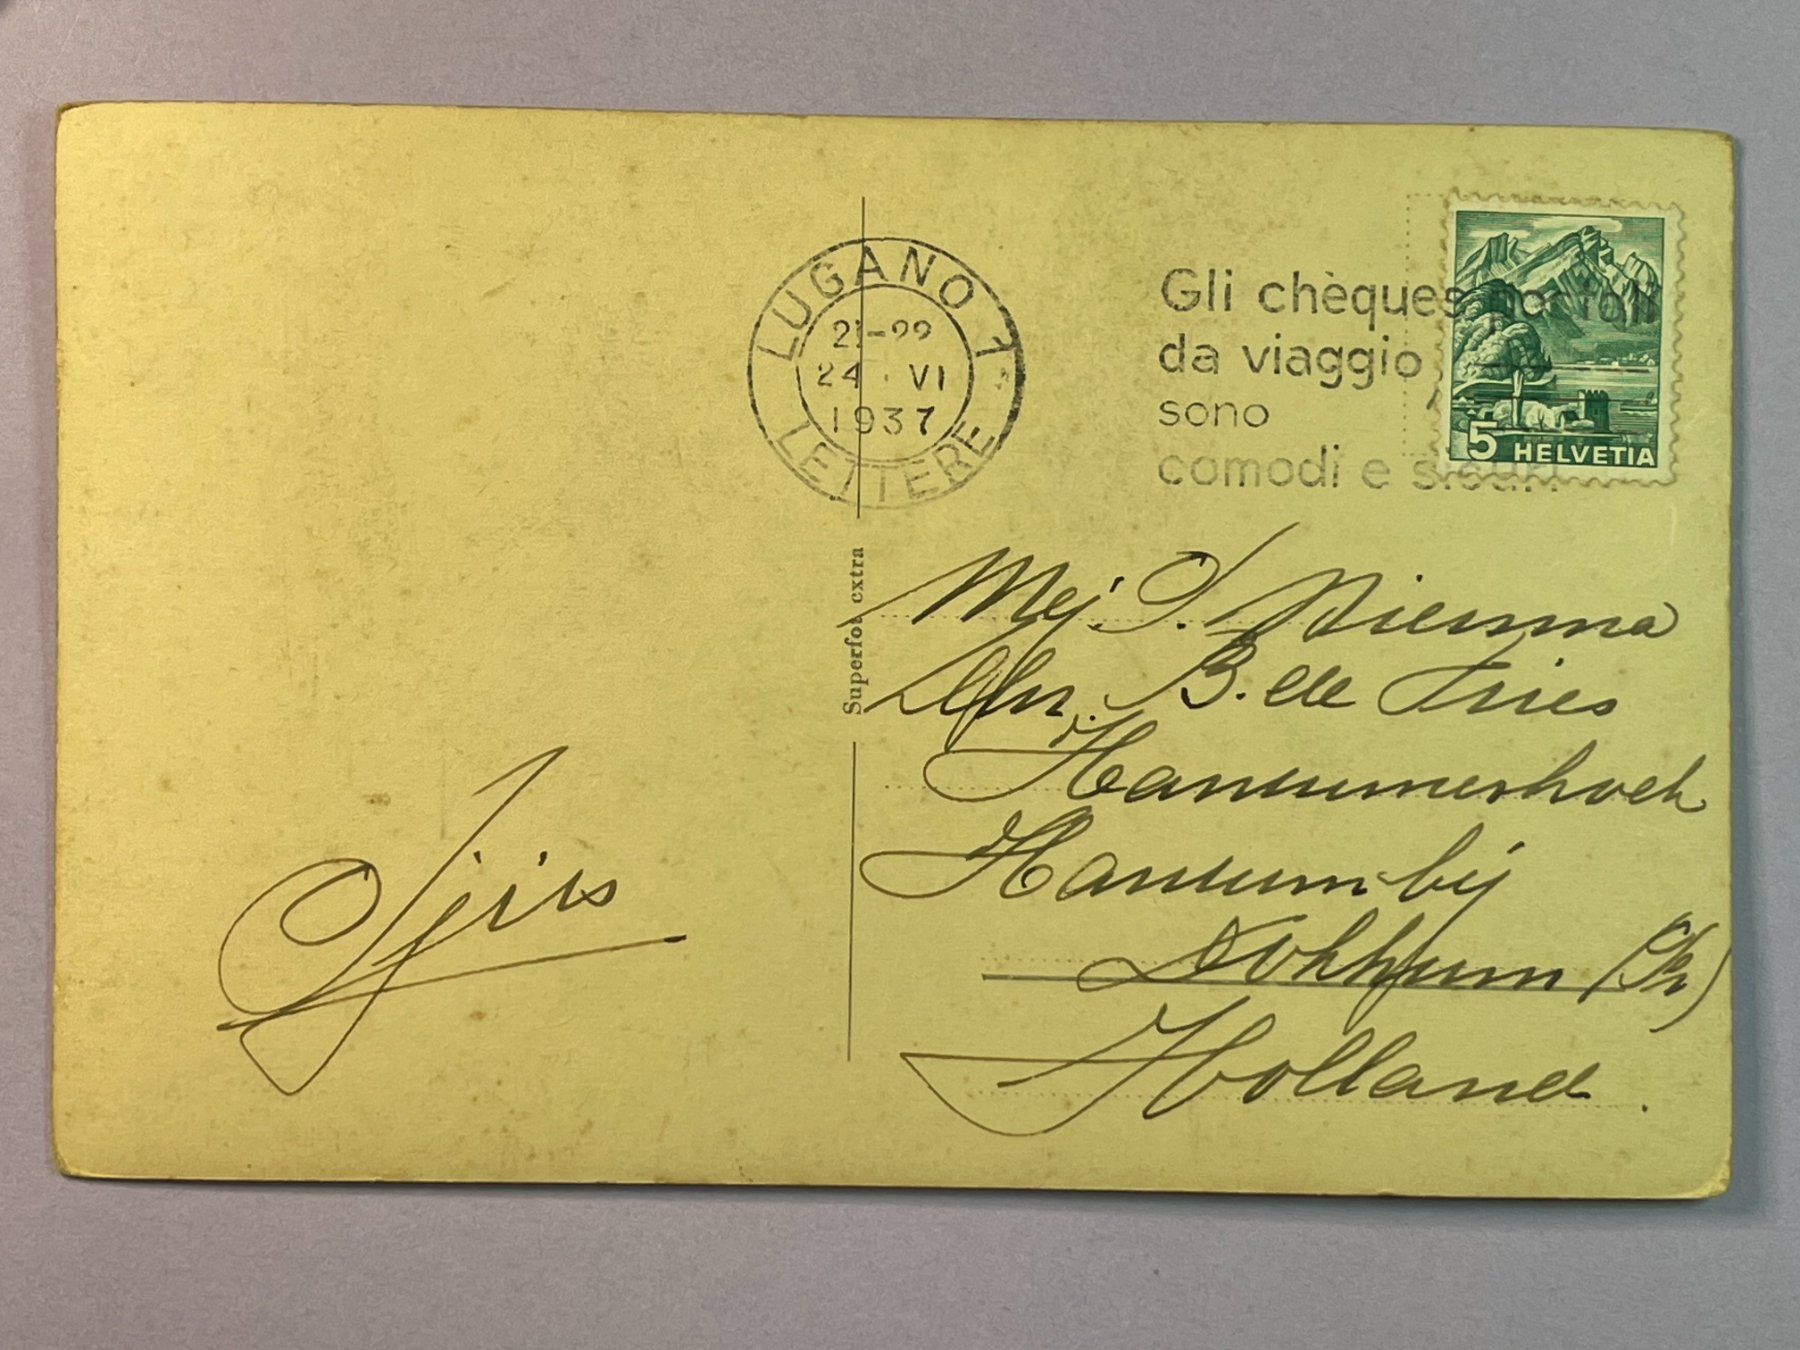 LUGANO 1
21-22
24 · VI
1937
LETTERE
Gli chèques
da viaggio
sono
comodi e sicuri
5 HELVETIA
Superfot extra
Mej. J. Niemma
p/a Mr. B. de Vries
Hantumerhoek
Hantum bij
Dokkum (Fr)
Holland.
Sjirs